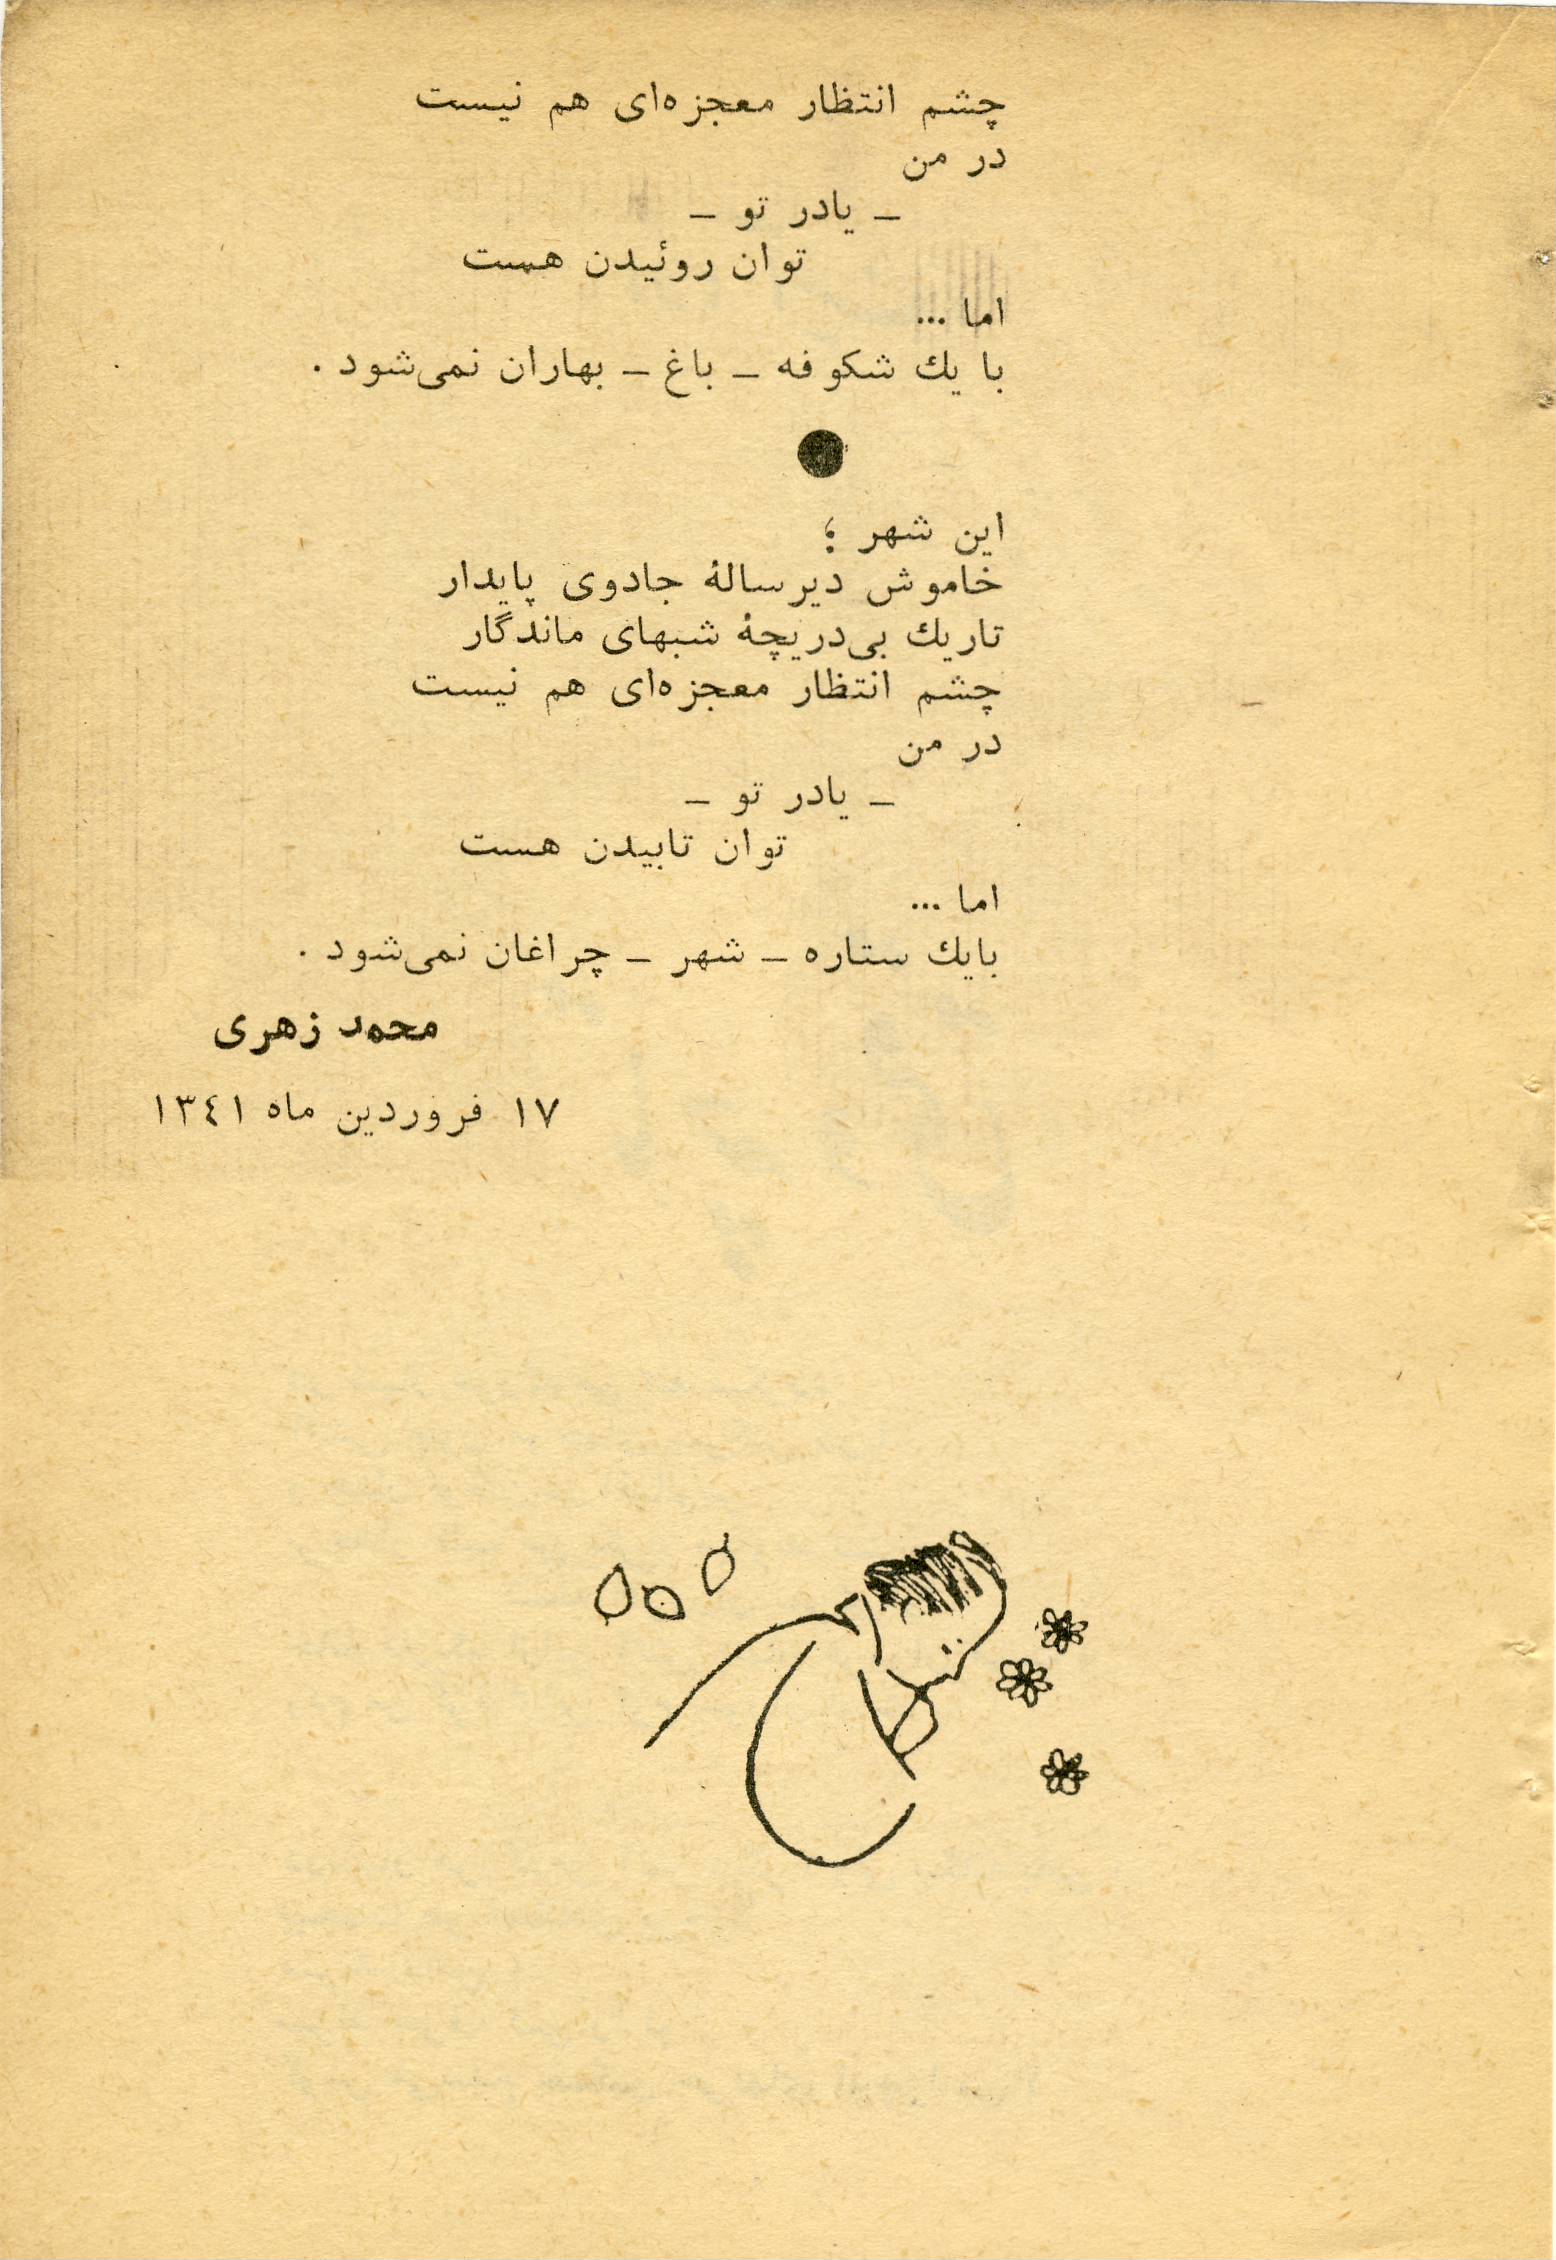 چشم انتظار معجزه‌ای هم نیست
در من
ـ یادر تو ـ
توان روئیدن هست
اما ...
با یك شكوفه ـ باغ ـ بهاران نمی‌شود .
این شهر ؛
خاموش دیرسالۀ جادوی پایدار
تاریك بی‌دریچۀ شبهای ماندگار
چشم انتظار معجزه‌ای هم نیست
در من
ـ یادر تو ـ
توان تابیدن هست
اما ...
بایك ستاره ـ شهر ـ چراغان نمی‌شود .
محمد زهری
۱۷ فروردین ماه ۱۳٤۱